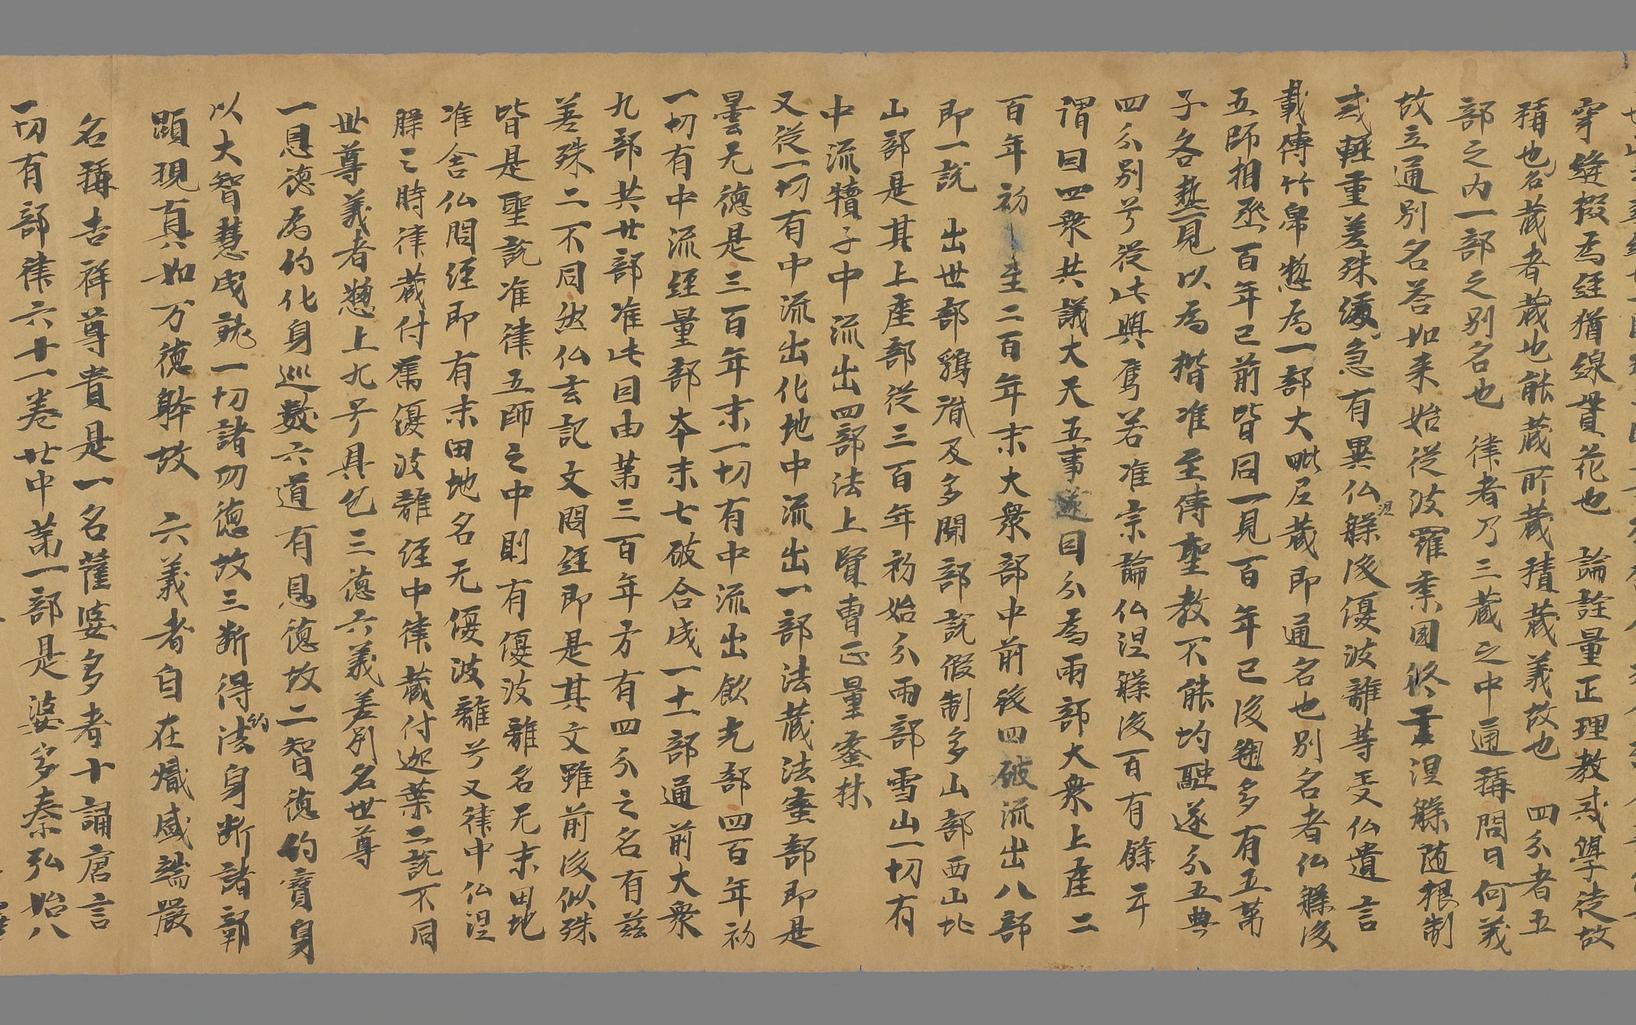 穿縫掇為經猶線貫花也　論詮量正理教或學徒故
積也名藏者藏也能藏所藏積藏義故也　四分者五
部之內一部之別名也　律者乃三藏之中通稱問曰何義
故立通別名答如来始從波羅柰國終至涅槃随根制
或輕重差殊緩急有異仏涅槃後優波離等受仏遺言
載傳竹帛惣為一部大毗尼藏即通名也別名者仏槃後
五師相承百年已前皆同一見百年已後毱多有五弟
子各執見以為揩准至傳聖教不能均融遂分五典
四分別号從此興焉若准宗論仏涅槃後百有餘年
謂曰四衆共議大天五事遂目分為兩部大衆上座二
百年初至二百年末大衆部中前後四破流出八部
即一說　出世部鶏胤及多聞部說假制多山部西山北
山部是其上座部從三百年初始分兩部雪山一切有
中流犢子中流出四部法上賢冑正量蜜林
又從一切有中流出化地中流出一部法藏法蜜部即是
曇无德是三百年末一切有中流出飲光部四百年初
一切有中流經量部夲末七破合成一十一部通前大衆
九部共廿部准此目由第三百年方有四分之名有茲
差殊二不同然仏玄記文問經即是其文雖前後似殊
皆是聖說准律五師之中則有優波離名无末田地
准舍仏問經即有末田地名无優波離号又律中仏涅
槃之時律藏付囑優波離經中律藏付迦葉二說不同
世尊義者惣上九号具包三德六義差別名世尊
一恩德為約化身巡數六道有恩德故二智德約寶身
以大智慧成就一切諸功德故三断得約法身断諸鄣
顕現真如万德躰故　六義者自在熾盛端嚴
名稱吉祥尊貴是一名薩婆多者十誦唐言
一切有部律六十一卷廿中第一部是婆多秦弘始八